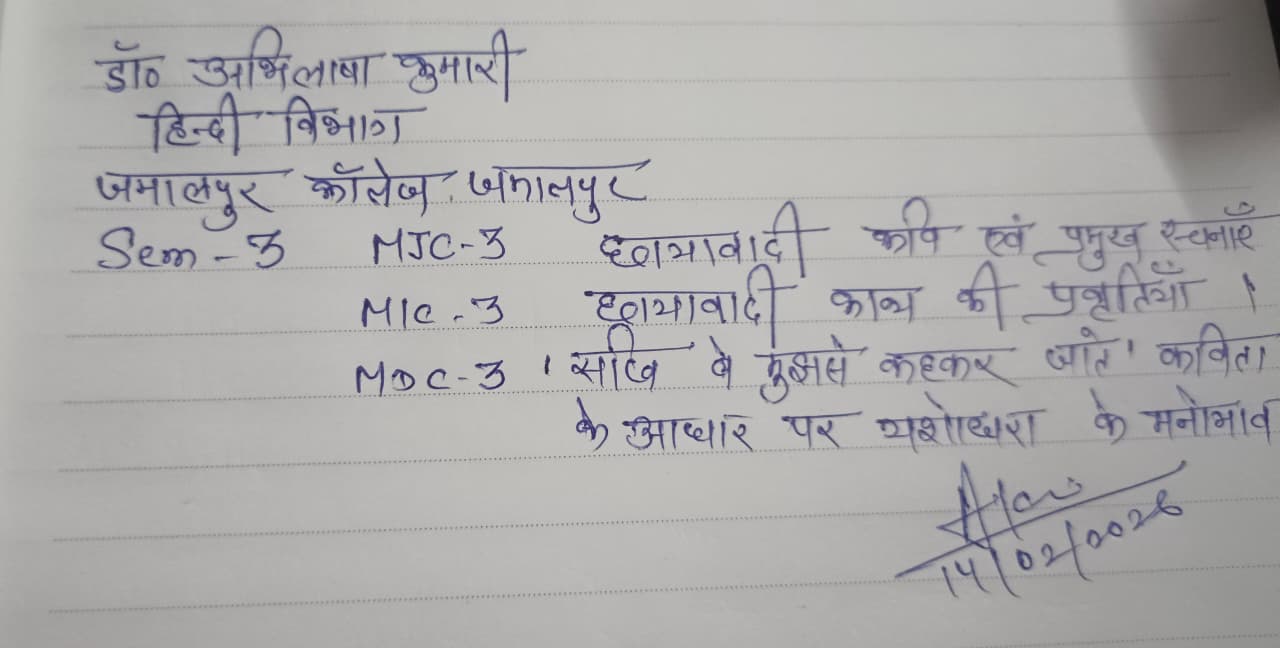 डॉ० अभिलाषा कुमारी
हिन्दी विभाग
जमालपुर कॉलेज, जमालपुर
Sem - 3 MJC-3 छायावादी कवि एवं प्रमुख रचनाएँ
MIC - 3 छायावादी काव्य की प्रवृतियाँ ।
MDC-3 'सखि वे मुझसे कहकर जाते' कविता
के आधार पर यशोधरा के मनोभाव
14/02/2026